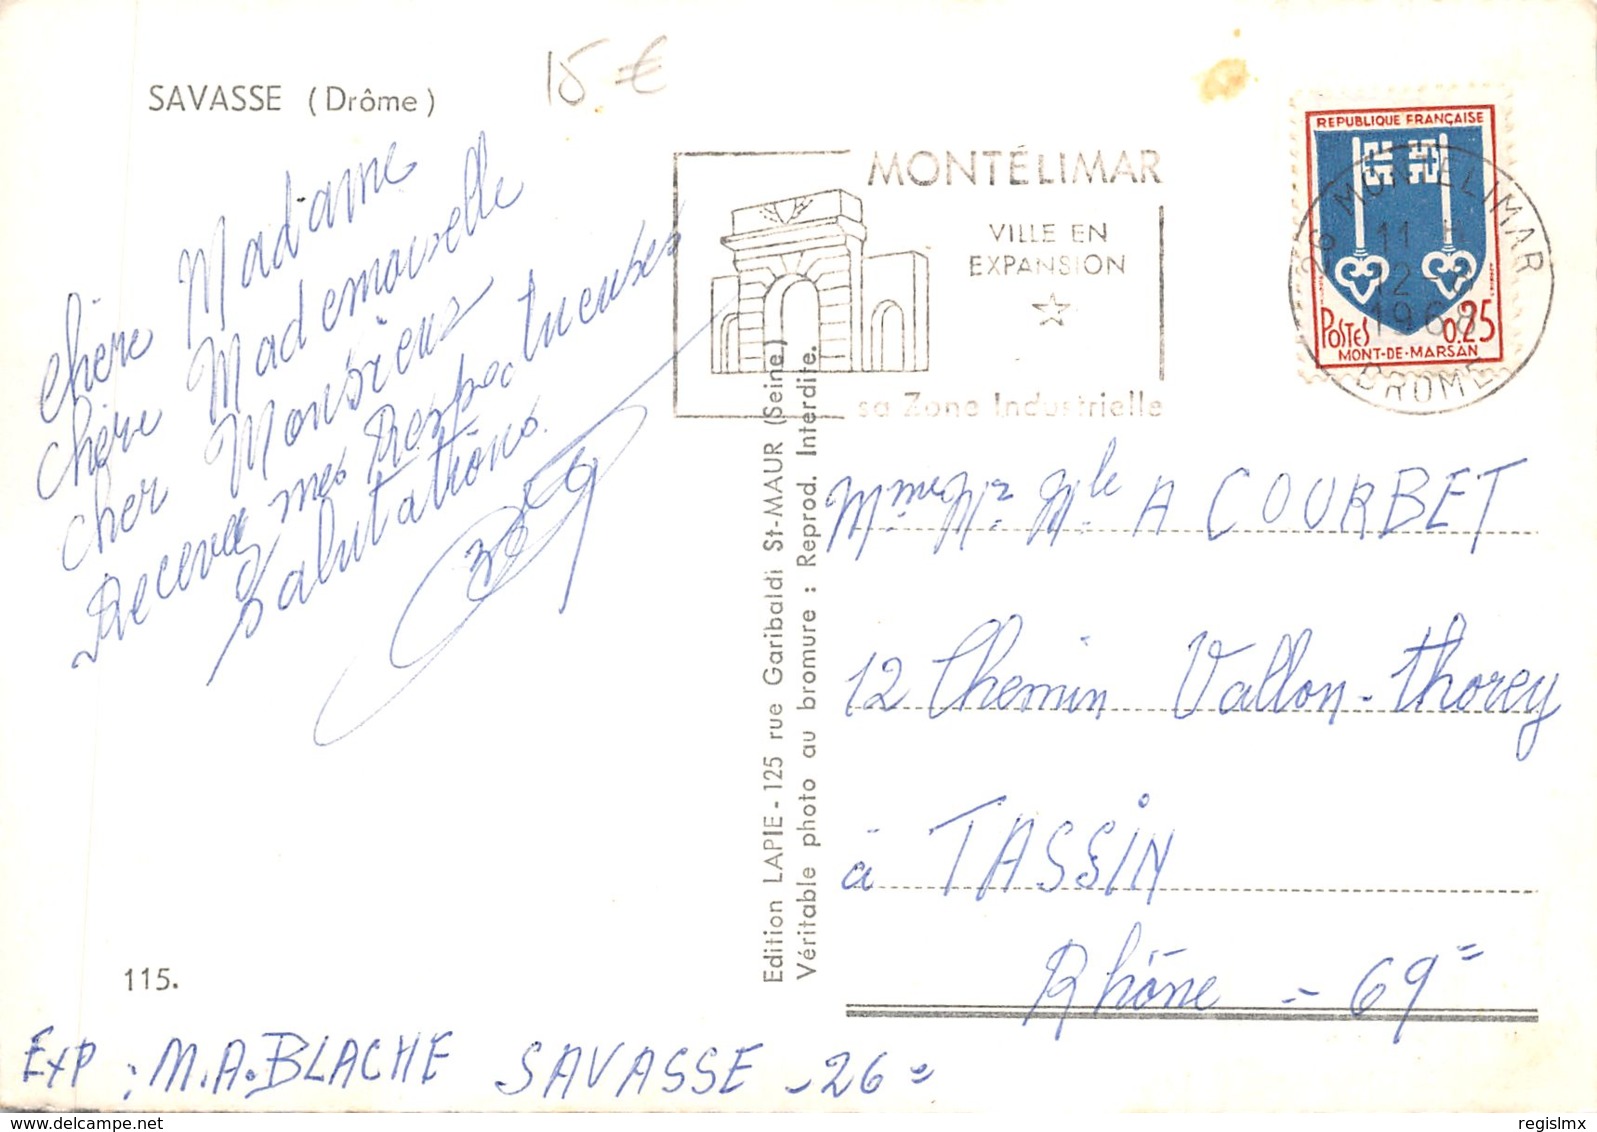 SAVASSE (Drôme)
15 €
Chère Madame
Chère Mademoiselle
Cher Monsieur
Recevez mes Respectueuses
Salutations.
115.
EXP : M.A. BLACHE SAVASSE - 26 =
Edition LAPIE - 125 rue Garibaldi St-MAUR (Seine)
Véritable photo au bromure : Reprod. Interdite.
MONTÉLIMAR
VILLE EN
EXPANSION
sa Zone Industrielle
REPUBLIQUE FRANÇAISE
POSTES 0.25
MONT-DE-MARSAN
26 MONTELIMAR
11 H
12 -
1968
DROME
Mme Mr Mle A COURBET
12 Chemin Vallon-Thorey
à TASSIN
Rhône - 69 =
delcampe.net
regislmx